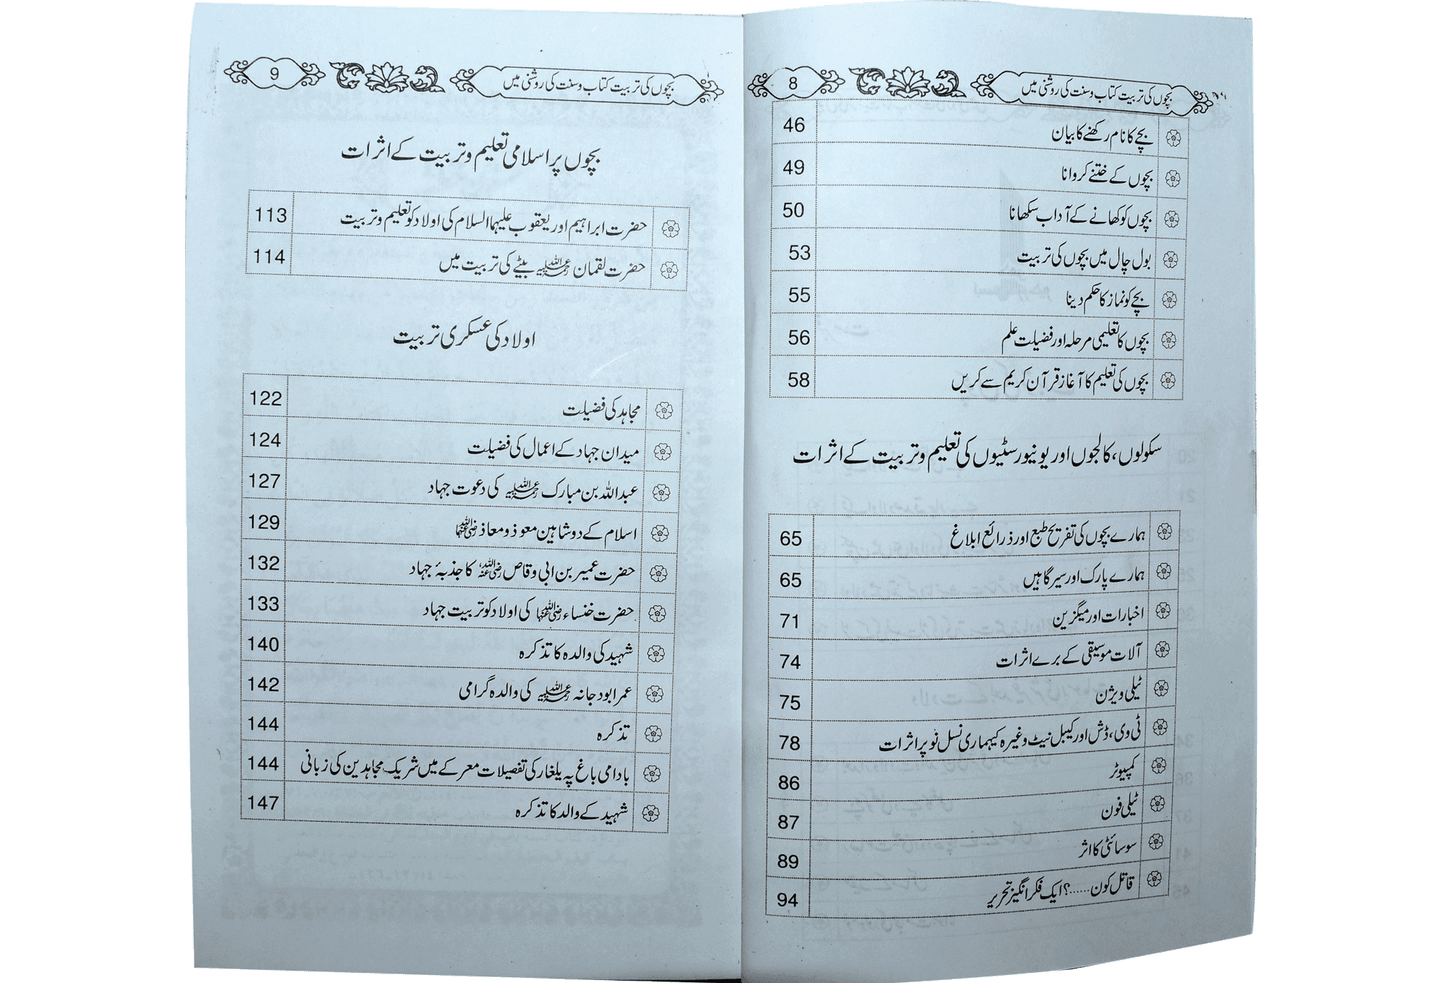 بچوں کی تربیت کتاب وسنت کی روشنی میں 8
بچے کا نام رکھنے کا بیان 46
بچوں کے ختنے کروانا 49
بچوں کو کھانے کے آداب سکھانا 50
بول چال میں بچوں کی تربیت 53
بچے کو نماز کا حکم دینا 55
بچوں کا تعلیمی مرحلہ اور فضیلت علم 56
بچوں کی تعلیم کا آغاز قرآن کریم سے کریں 58
سکولوں، کالجوں اور یونیورسٹیوں کی تعلیم وتربیت کے اثرات
ہمارے بچوں کی تفریح طبع اور ذرائع ابلاغ 65
ہمارے پارک اور سیرگاہیں 65
اخبارات اور میگزین 71
آلات موسیقی کے برے اثرات 74
ٹیلی ویژن 75
ٹی وی، ڈش اور کیبل نیٹ وغیرہ کیہماری نسل نو پر اثرات 78
کمپیوٹر 86
ٹیلی فون 87
سوسائٹی کا اثر 89
قاتل کون......؟ ایک فکر انگیز تحریر 94
بچوں کی تربیت کتاب وسنت کی روشنی میں 9
بچوں پر اسلامی تعلیم وتربیت کے اثرات
حضرت ابراہیم اور یعقوب علیہما السلام کی اولاد کو تعلیم وتربیت 113
حضرت لقمان رحمۃ اللہ علیہ بیٹے کی تربیت میں 114
اولاد کی عسکری تربیت
مجاہد کی فضیلت 122
میدان جہاد کے اعمال کی فضیلت 124
عبداللہ بن مبارک رحمۃ اللہ علیہ کی دعوت جہاد 127
اسلام کے دو شاہین معوذ ومعاذ رضی اللہ عنہما 129
حضرت عمیر بن ابی وقاص رضی اللہ عنہ کا جذبۂ جہاد 132
حضرت خنساء رضی اللہ عنہا کی اولاد کو تربیت جہاد 133
شہید کی والدہ کا تذکرہ 140
عمر ابودجانہ رحمۃ اللہ علیہ کی والدہ گرامی 142
تذکرہ 144
بادامی باغ پہ یلغار کی تفصیلات معرکے میں شریک مجاہدین کی زبانی 144
شہید کے والد کا تذکرہ 147